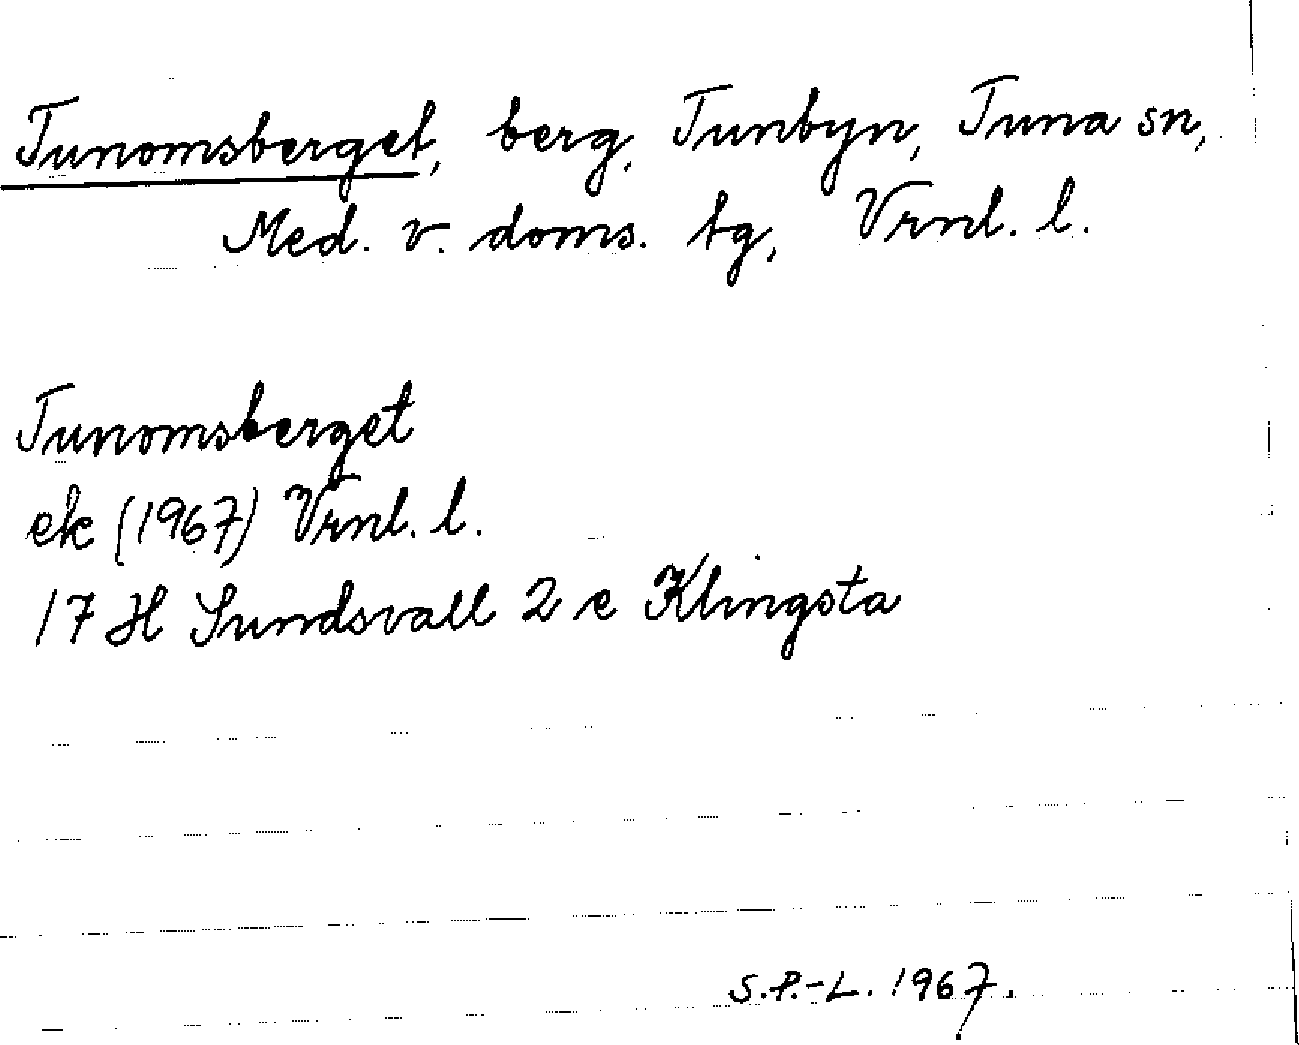 Tunomsberget, berg, Tunbyn, Tuna sn,
Med. v. doms. tg, Vrnl. l.
Tunomsberget
ek (1967) Vrnl. l.
17 H Sundsvall 2 c Klingsta
S.P.-L. 1967.